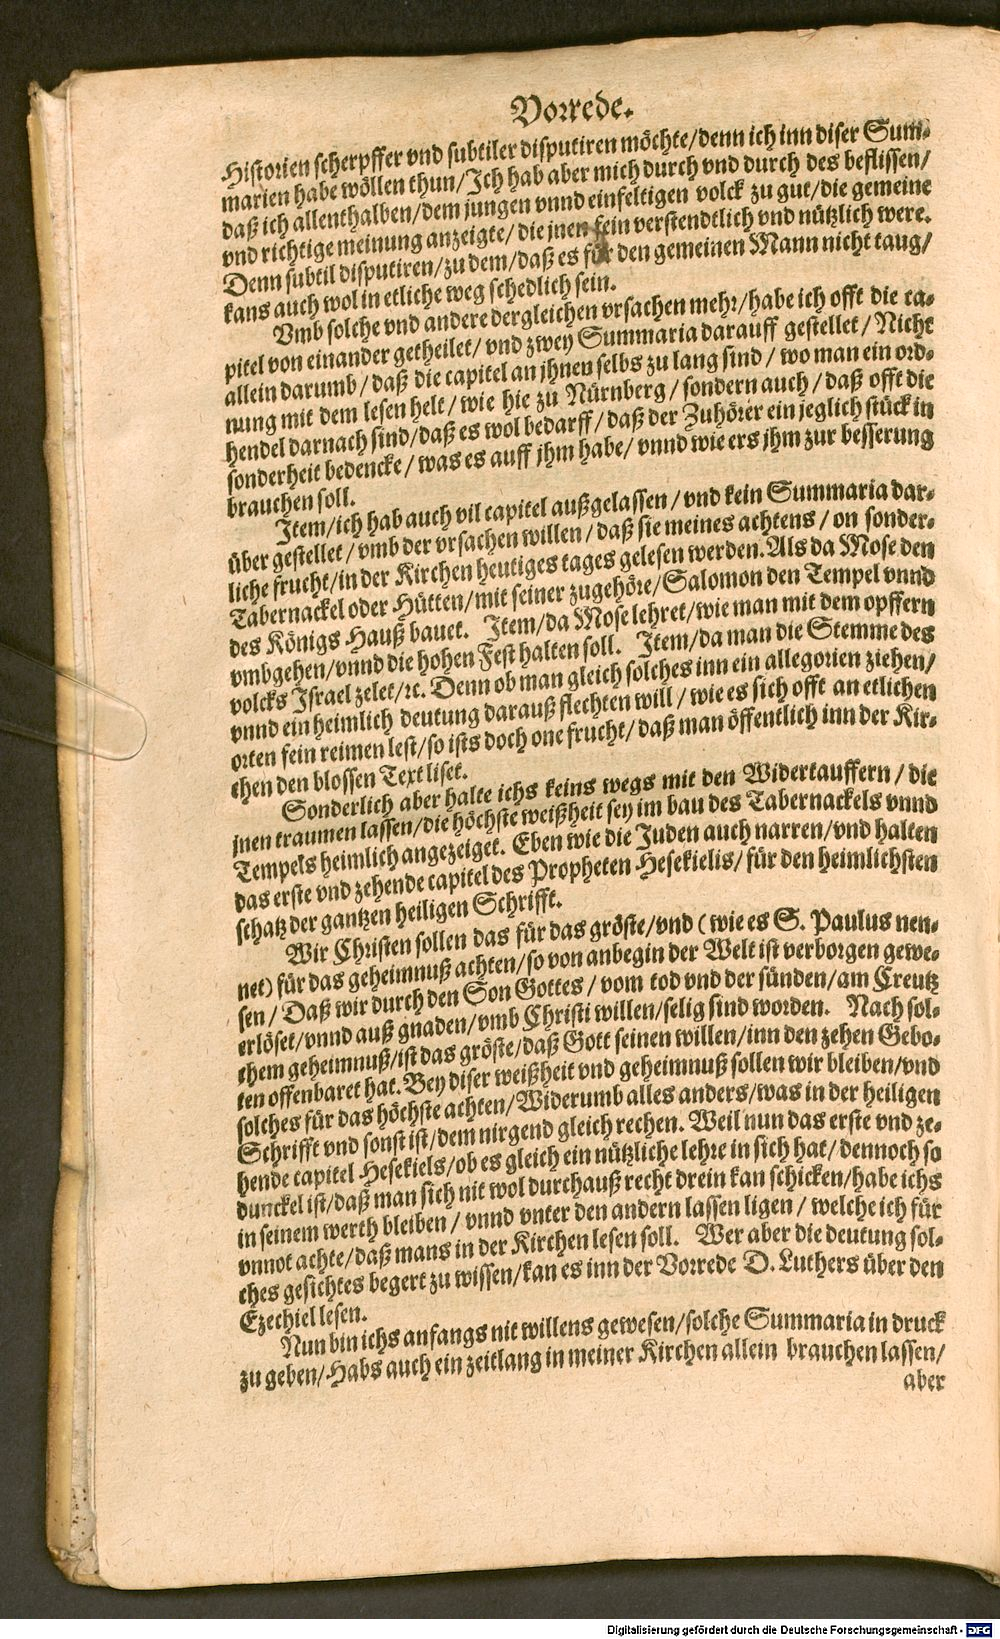 Vorrede.
Historien scherpffer vnd subtiler disputiren möchte/denn ich inn diser Sum-
marien habe wöllen thun/Ich hab aber mich durch vnd durch des beflissen/
daß ich allenthalben/dem jungen vnnd einfeltigen volck zu gut/die gemeine
vnd richtige meinung anzeigte/die jnen fein verstendtlich vnd nützlich were.
Denn subtil disputiren/zu dem/daß es für den gemeinen Mann nicht taug/
kans auch wol in etliche weg schedlich sein.
Vmb solche vnd andere dergleichen vrsachen mehr/habe ich offt die ca-
pitel von einander getheilet/vnd zwey Summaria darauff gestellet/Nicht
allein darumb/daß die capitel an jhnen selbs zu lang sind/wo man ein ord-
nung mit dem lesen helt/wie hie zu Nürnberg/sondern auch/daß offt die
hendel darnach sind/daß es wol bedarff/daß der Zuhörer ein jeglich stück in
sonderheit bedencke/was es auff jhm habe/vnnd wie ers jhm zur besserung
brauchen soll.
Item/ich hab auch vil capitel außgelassen/vnd kein Summaria dar-
über gestellet/vmb der vrsachen willen/daß sie meines achtens/on sonder-
liche frucht/in der Kirchen heutiges tages gelesen werden. Als da Mose den
Tabernackel oder Hütten/mit seiner zugehöre/Salomon den Tempel vnnd
des Königs Hauß bauet. Item/da Mose lehret/wie man mit dem opffern
vmbgehen/vnnd die hohen Fest halten soll. Item/da man die Stemme des
volcks Israel zelet/ꝛc. Denn ob man gleich solches inn ein allegorien ziehen/
vnnd ein heimlich deutung darauß flechten will/wie es sich offt an etlichen
orten fein reimen lest/so ists doch one frucht/daß man öffentlich inn der Kir-
chen den blossen Text liset.
Sonderlich aber halte ichs keins wegs mit den Widertauffern/die
jnen traumen lassen/die höchste weißheit sey im bau des Tabernackels vnnd
Tempels heimlich angezeiget. Eben wie die Juden auch narren/vnd halten
das erste vnd zehende capitel des Propheten Hesekielis/für den heimlichsten
schatz der gantzen heiligen Schrifft.
Wir Christen sollen das für das gröste/vnd (wie es S. Paulus nen-
net) für das geheimnuß achten/so von anbegin der Welt ist verborgen gewe-
sen/Daß wir durch den Son Gottes/vom tod vnd der sünden/am Creutz
erlöset/vnnd auß gnaden/vmb Christi willen/selig sind worden. Nach sol-
chem geheimnuß/ist das gröste/daß Gott seinen willen/inn den zehen Gebo-
ten offenbaret hat. Bey diser weißheit vnd geheimnuß sollen wir bleiben/vnd
solches für das höchste achten/Widerumb alles anders/was in der heiligen
Schrifft vnd sonst ist/dem nirgend gleich rechen. Weil nun das erste vnd ze-
hende capitel Hesekiels/ob es gleich ein nützliche lehre in sich hat/dennoch so
dunckel ist/daß man sich nit wol durchauß recht drein kan schicken/habe ichs
in seinem werth bleiben/vnnd vnter den andern lassen ligen/welche ich für
vnnot achte/daß mans in der Kirchen lesen soll. Wer aber die deutung sol-
ches gesichtes begert zu wissen/kan es inn der Vorrede D. Luthers über den
Ezechiel lesen.
Nun bin ichs anfangs nit willens gewesen/solche Summaria in druck
zu geben/Habs auch ein zeitlang in meiner Kirchen allein brauchen lassen/
aber
Digitalisierung gefördert durch die Deutsche Forschungsgemeinschaft - DFG